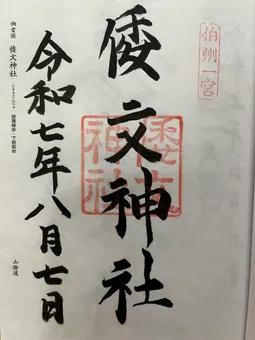 伯州一宮
倭文神社
倭文神社
令和七年八月七日
伯耆國 倭文神社
山陰道